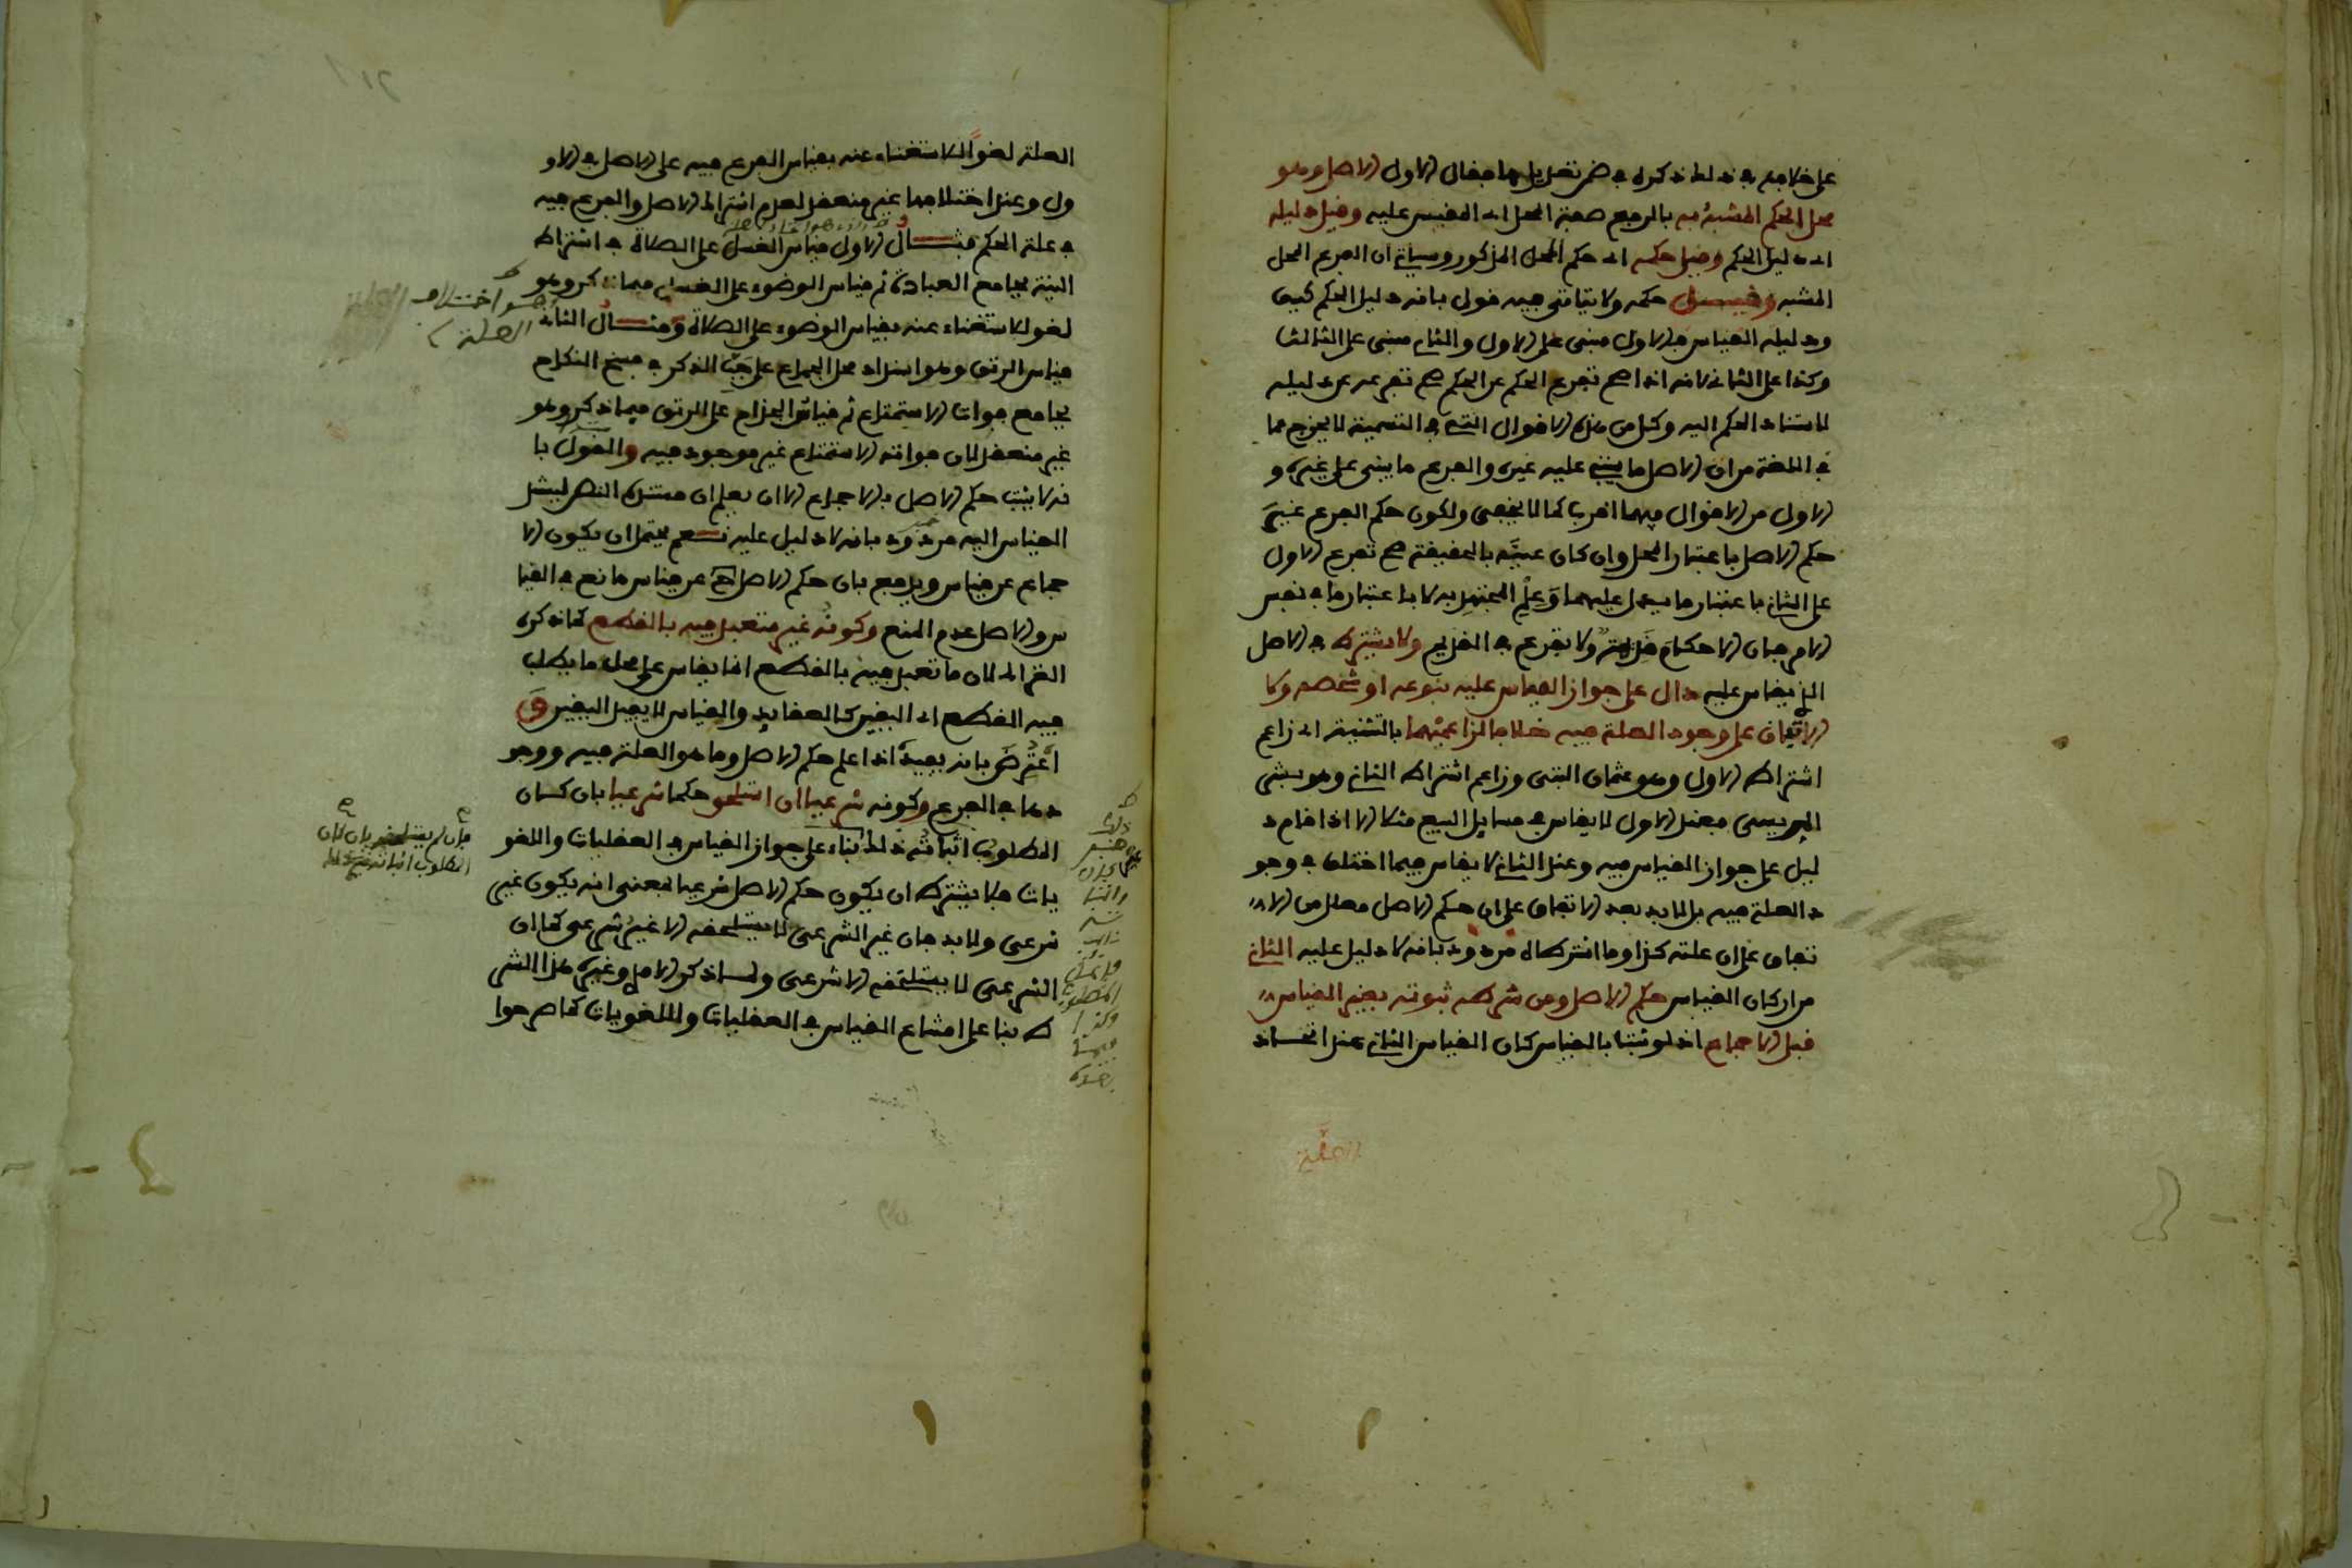 على خلاف في ذلك ذكره في ضمن تعديلها فقال الاول الاصل وهو
محل الحكم المشبه به بالرفع صفة المحل اي المقيس عليه وقيل دليله
اي دليل الحكم وقيل حكمه اي حكم المحل المذكور وسياتي ان الفرع المحل
المشبه وقيل حكمه ولا يتاتى فيه قول بانه دليل الحكم كيف
ودليله القياس فالاول مبني على الاول والثاني مبني على الثالث
وكذا على الثاني لانه اذا صح تفرع الحكم عن الحكم صح تفرعه عن دليله
لاستناد الحكم اليه وكل من هذه الاقوال التي في التسمية لا يخرج عما
في اللغة من ان الاصل ما يبنى عليه غيره والفرع ما يبنى على غيره و
الاول من الاقوال فيهما اقرب كما لا يخفى ولكون حكم الفرع غير
حكم الاصل باعتبار المحل وان كان عينه بالحقيقة صح تفرع الاول
على الثاني باعتبار ما يدل عليهما وعلم المجتهد به لا باعتبار ما في نفس
الامر فان الاحكام قديمة ولا تفرع في القديم ولا يشترط في الاصل
الذي يقاس عليه دال على جواز القياس عليه بنوعه او شخصه ولا
الاتفاق على وجود العلة فيه خلافا لزاعميهما بالتثنية اي زاعم
اشتراط الاول وهو عثمان البتي وزاعم اشتراط الثاني وهو بشر
المريسي فعند الاول لا يقاس في مسايل البيع مثلا الا اذا قام د
ليل على جواز القياس فيه وعند الثاني لا يقاس فيما اختلف في وجو
د العلة فيه بل لا بد بعد الاتفاق على ان حكم الاصل معلل من الا
تفاق على ان علته كذا وما اشترطاه مردود بانه لا دليل عليه الثاني
من اركان القياس حكم الاصل ومن شرطه ثبوته بغير القياس
قيل والاجماع اذ لو ثبت بالقياس كان القياس الثاني عند اتحاد
العلة لغوا للاستغناء عنه بقياس الفرع فيه على الاصل في الا
ول وعند اختلافهما غير منعقد لعدم اشتراك الاصل والفرع فيه
في علة الحكم مثال الاول قياس الغسل على الصلاة في اشتراط
النية بجامع العبادة ثم قياس الوضوء على الغسل فيما ذكر وهو
لغو للاستغناء عنه بقياس الوضوء على الصلاة ومثال الثاني
اختلاف
العلة
قياس الرتق وهو انسداد محل الجماع على جب الذكر في فسخ النكاح
بجامع فوات الاستمتاع ثم قياس الجذام على الرتق فيما ذكر وهو
غير منعقد لان فوات الاستمتاع غير موجود فيه والقول با
نه لا يثبت حكم الاصل بالاجماع الا ان يعلم ان مستنده النص ليستند
القياس اليه مردود بانه لا دليل عليه نعم يحتمل ان يكون الا
جماع عن قياس ويدفع بان حكم الاصل ح عن قياس مانع في القيا
س والاصل عدم المنع وكونه غير متعبد فيه بالقطع كما ذكره
الغزالي لان ما تعبد فيه بالقطع انما يقاس على محله ما يطلب
فيه القطع اي اليقين كالعقايد والقياس لا يفيد اليقين و
اعترض بانه يفيده اذا علم حكم الاصل وما هو العلة فيه ووجو
دها في الفرع وكونه شرعيا ان استلحق حكما شرعيا بان كان
فان لم يستلحقه بان كان
المطلوب اثباته غير ذلك
المطلوب اثباته ذلك بناء على جواز القياس في العقليات واللغو
يات فلا يشترط ان يكون حكم الاصل شرعيا بمعنى انه يكون غير
شرعي ولا بد فان غير الشرعي لا يستلحقه الا غير شرعي كما ان
الشرعي لا يستلحقه الا شرعي ولما ذكر الامدي وغيره هذا الشر
ط بناء على امتناع القياس في العقليات واللغويات كما صرحوا